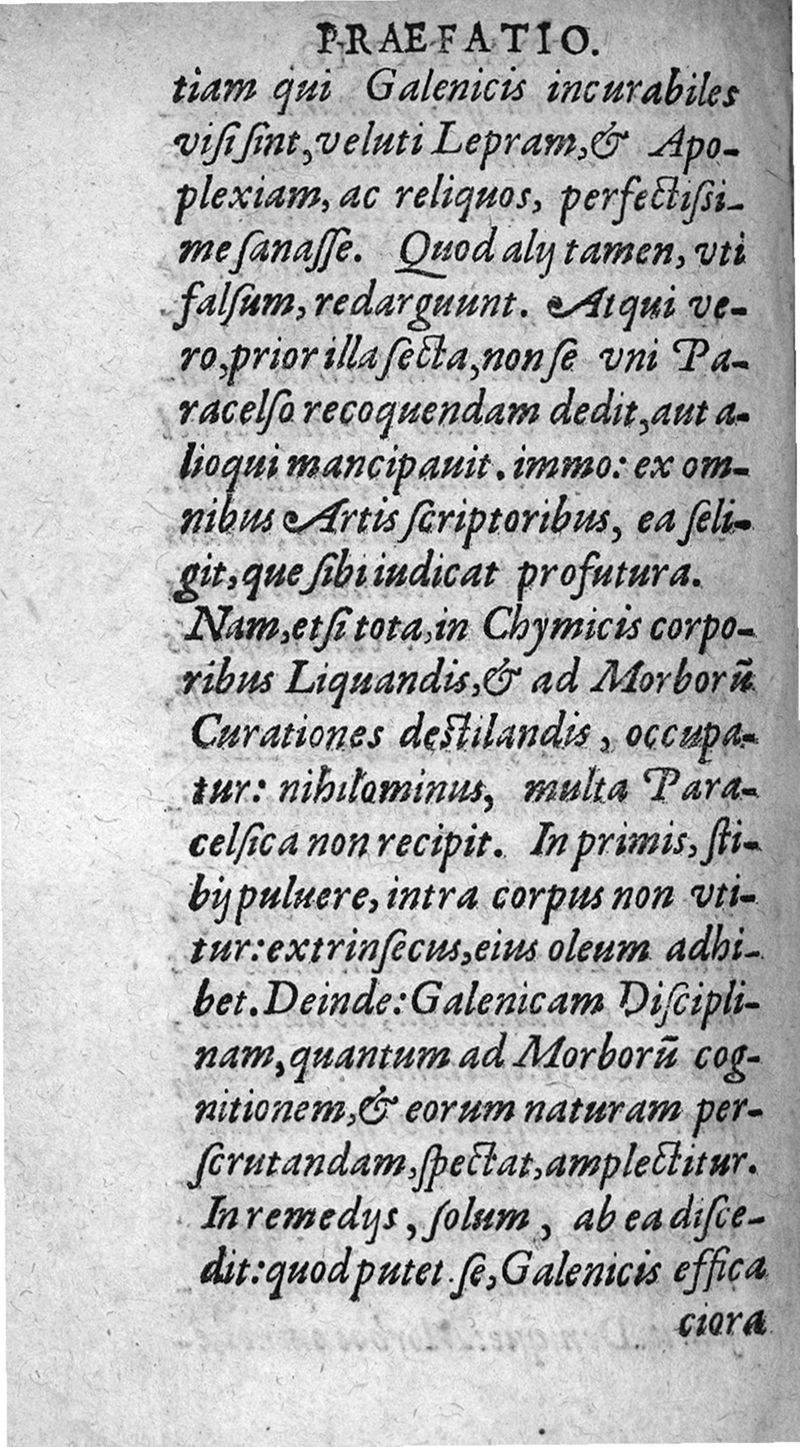 PRAEFATIO.
tiam qui Galenicis incurabiles
visi sint, veluti Lepram, & Apo-
plexiam, ac reliquos, perfectissi-
me sanasse. Quod alij tamen, vti
falsum, redarguunt. Atqui ve-
ro, prior illa secta, non se vni Pa-
racelso recoquendam dedit, aut a-
lioqui mancipauit. immo: ex om-
nibus Artis scriptoribus, ea seli-
git, que sibi iudicat profutura.
Nam, etsi tota, in Chymicis corpo-
ribus Liquandis, & ad Morborũ
Curationes destilandis, occupa-
tur: nihilominus, multa Para-
celsica non recipit. In primis, sti-
bij puluere, intra corpus non vti-
tur: extrinsecus, eius oleum adhi-
bet. Deinde: Galenicam Discipli-
nam, quantum ad Morborũ cog-
nitionem, & eorum naturam per-
scrutandam, spectat, amplectitur.
In remedijs, solum, ab ea disce-
dit: quod putet se, Galenicis effica
ciora